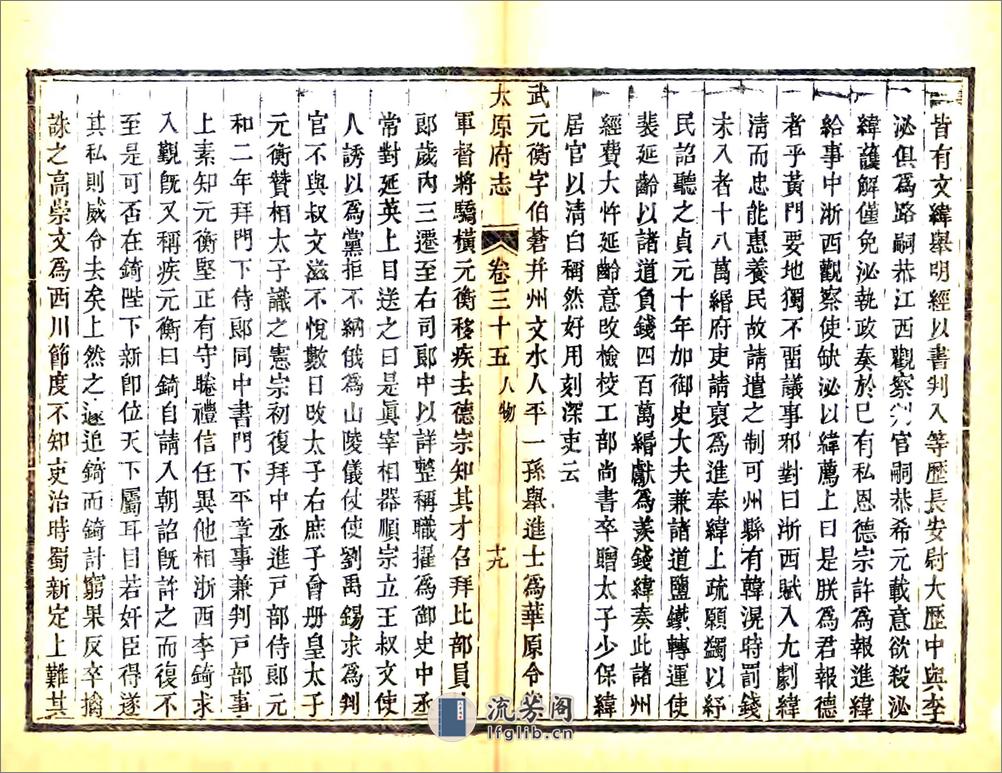 皆有文緯舉明經以書判入等歷長安尉大歷中與李
泌俱爲路嗣恭江西觀察判官嗣恭希元載意欲殺泌
緯護解僅免泌執政奏於已有私恩德宗許爲報進緯
給事中浙西觀察使缺泌以緯薦上曰是朕爲君報德
者乎黃門要地獨不畱議事邪對曰浙西賦入尢劇緯
清而忠能惠養民故請遣之制可州縣有韓滉時罰錢
未入者十八萬緡府吏請裒爲進奉緯上疏願蠲以紓
民詔聽之貞元十年加御史大夫兼諸道鹽鐵轉運使
裴延齡以諸道負錢四百萬緡獻爲羨錢緯奏此諸州
經費大忤延齡意改檢校工部尚書卒贈太子少保緯
居官以清白稱然好用刻深吏云
武元衡字伯蒼并州文水人平一孫舉進士爲華原令
太原府志 卷三十五 人物 十九
軍督將驕橫元衡移疾去德宗知其才召拜比部員
郎歲內三遷至右司郎中以詳整稱職擢爲御史中丞
常對延英上目送之曰是眞宰相器順宗立王叔文使
人誘以爲黨拒不納俄爲山陵儀仗使劉禹錫求爲判
官不與叔文滋不悅數日改太子右庶子會册皇太子
元衡贊相太子識之憲宗初復拜中丞進戸部侍郎元
和二年拜門下侍郎同中書門下平章事兼判戸部事
上素知元衡堅正有守聴禮信任異他相浙西李錡求
入覲旣又稱疾元衡曰錡自請入朝詔旣許之而復不
至是可否在錡陛下新卽位天下屬耳目若奸臣得遂
其私則威令去矣上然之遂追錡而錡計窮果反卒擒
誅之高崇文爲西川節度不知吏治時蜀新定上難其
流芳阁
lfglib.cn